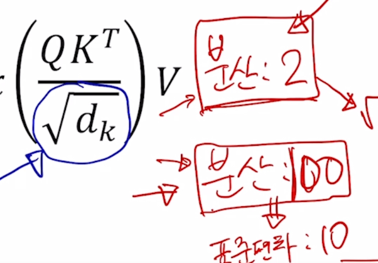 (QKᵀ / √dₖ) V
분산: 2
√
분산: 100
표준편차: 10